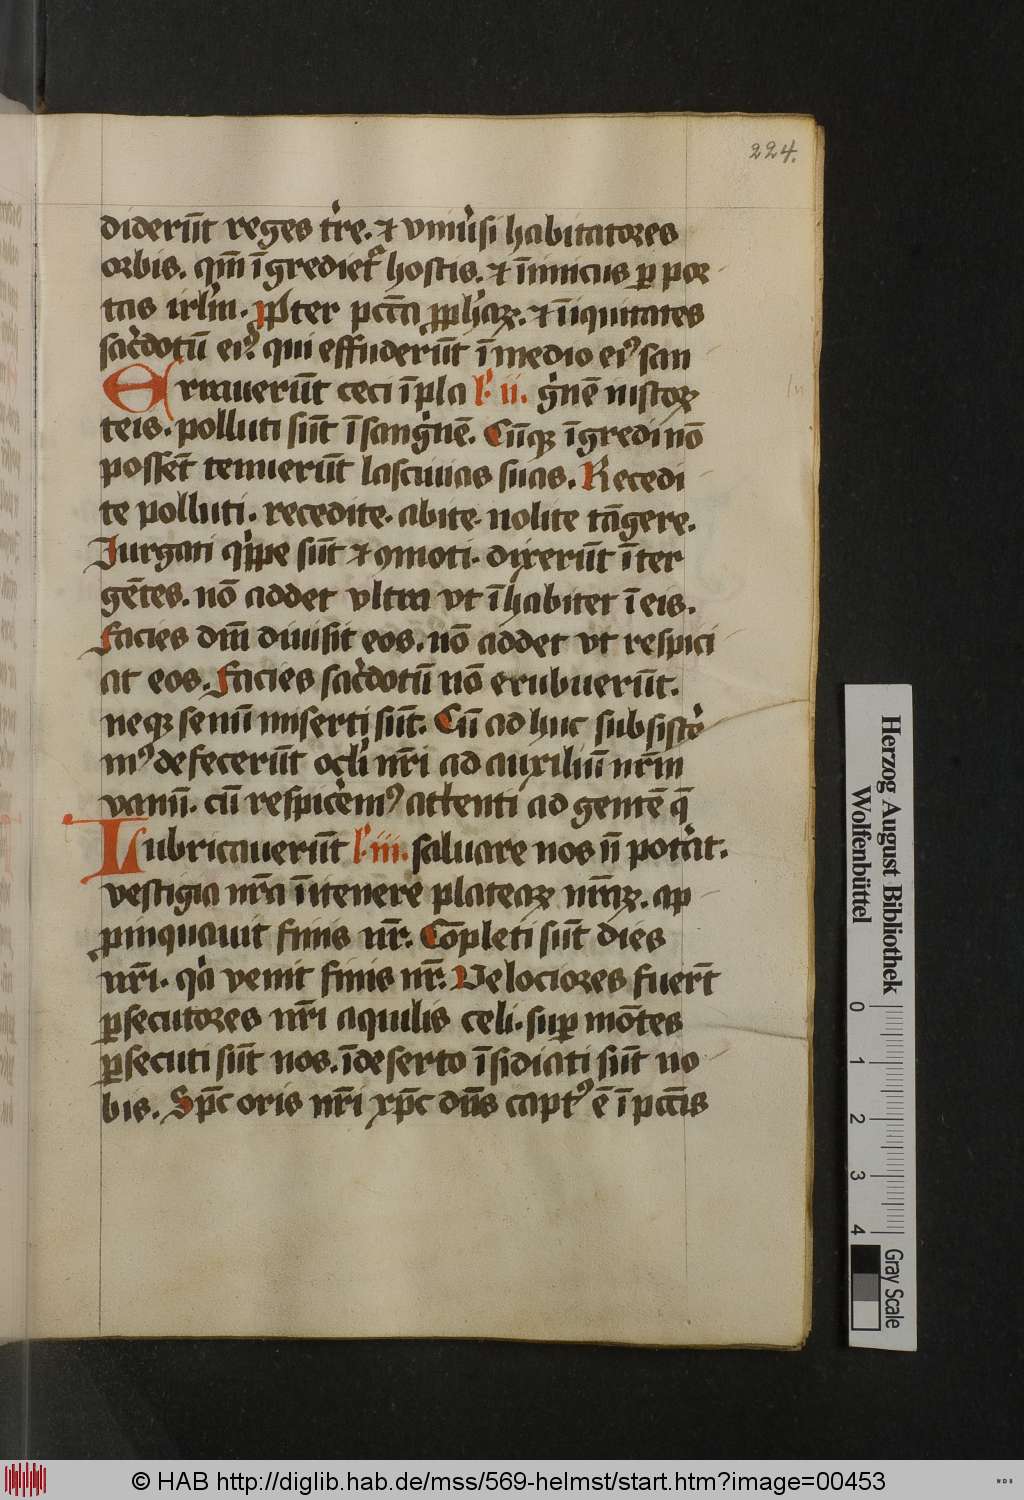 224.
diderūt reges tr̄e. ⁊ vniūsi habitatores
orbis. qm̄ īgrediet᷑ hostis. ⁊ īimicus ꝑ por
tas irlm̄. ꝓpter pctā ꝓph̄aꝝ. ⁊ īiquitates
sac̄dotū eiꝰ. qui effuderūt ī medio eiꝰ san
Errauerūt ceci ī pla l'. ii. gͥnē iustoꝝ
teis. polluti sūt ī sangͥnē. Cūqꝫ īgredi nō
possēt tenuerūt lascinias suas. Recedi
te polluti. recedite. abite. nolite tāgere.
Iurgati qͥppe sūt ⁊ ꝯmoti. dixerūt īter
gētes. nō addet vltra vt īhabitet ī eis.
facies dn̄i diuisit eos. nō addet vt respici
at eos. facies sac̄dotū nō erubuerūt.
neqꝫ senū miserti sūt. Cū ad huc subsiste᷑
mꝰ defecerūt ocl̄i nr̄i ad auxiliū nr̄m
vanū. cū respice᷑mꝰ attenti ad gentē q̄
Lubricauerūt l'. iii. saluare nos n̄ pot᷑at.
vestigia nr̄a ī itenere plateaꝝ nr̄aꝝ. ap
ꝓinquauit finis nr̄. Cōpleti sūt dies
nr̄i. qͣ venit finis nr̄. Velociores fuer̄t
ꝑsecutores nr̄i aquilis celi. suꝑ mōtes
ꝑsecuti sūt nos. ī deserto īsidiati sūt no
bis. Sp̄c oris nr̄i xp̄c dn̄s captꝰ ē ī pctīs
Herzog August Bibliothek
Wolfenbüttel
0 1 2 3 4
Gray Scale
© HAB http://diglib.hab.de/mss/569-helmst/start.htm?image=00453